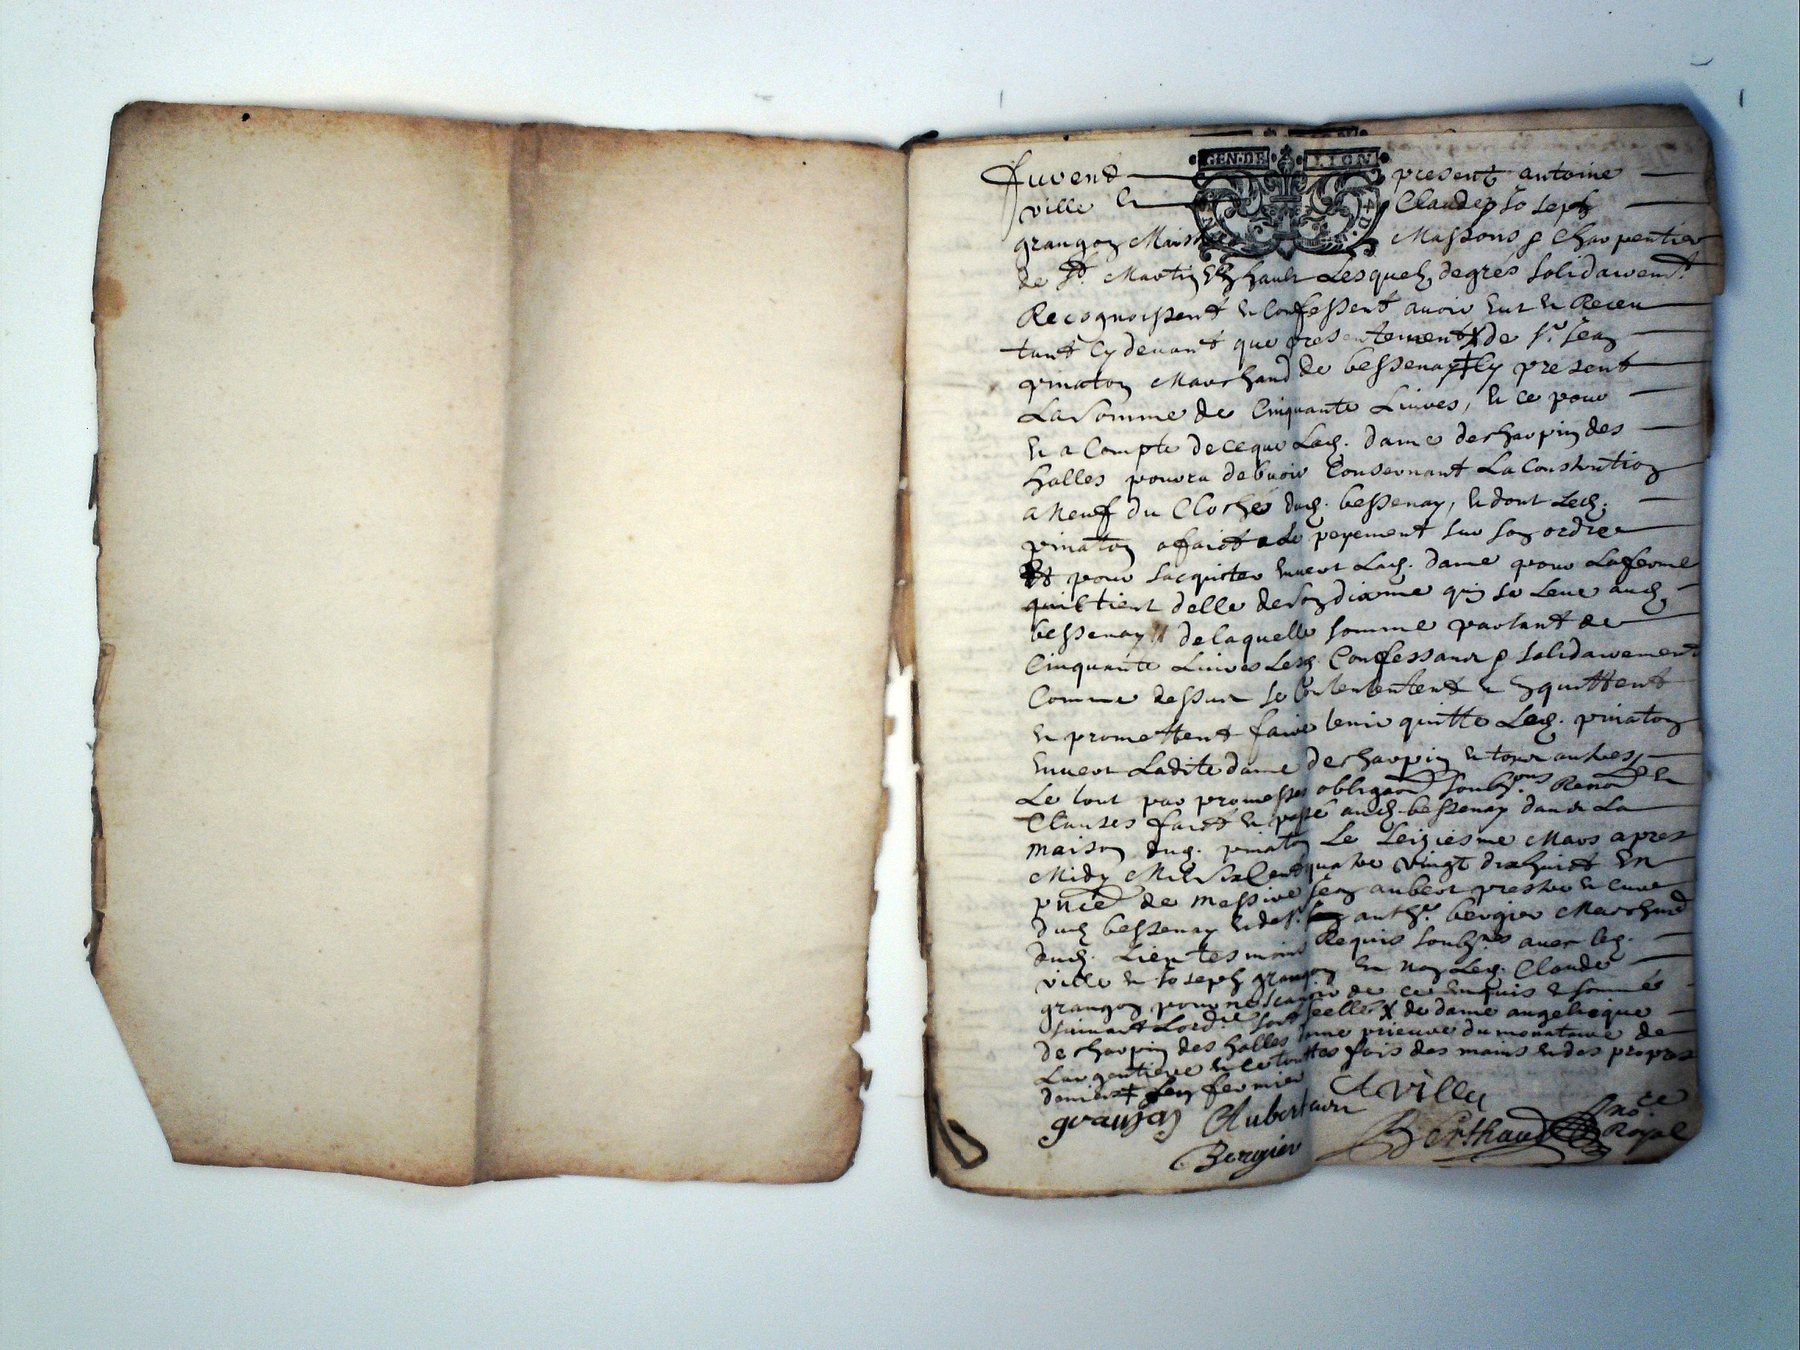 GEN·DE LION
furent present antoine
ville & Claude & Joseph
grangon Maistres Massons & Charpentier
de St. Martin Lesquelz degrés solidairemt
Recognoissent & Confessent avoir eut & Receu
tant Cy devant que presentement X de Sr. Jean
pinaton Marchand de bessenay Cy present
La Somme de Cinquante Livres, & ce pour
& a Compte de ce que Lad. dame de charpin des
halles pourra debvoir Consernant La Construction
a Neuf du Cloché dud. bessenay, & dont Led.
pinaton a faict Le payement sur son ordre
Et pour sacquiter envert Lad. dame pour La ferme
quil tient delle de son dixme qui se Leve aud.
bessenay de laquelle somme partant de
Cinquante Livres Lesd. Confessans & solidairement
Comme dessus se Contentent & quittent
& promettent faire tenir quitte Led. pinaton
envert Ladite dame de charpin & tous autres
Le tout par promesses obligaon soubz.ons Renon &
Clauses faict & passé aud. bessenay dans La
maison dud. pinaton Le seiziesme Mars apres
Midy Mil Six Cent quatre vingt dixhuict En
pnce de messire Jean aubert prestre & curé
dud bessenay & de Sr. anth. bergier Marchand
dud. Lieu tesmoins Requis soubz.nes avec led.
ville & Joseph grangon & non Led. Claude
grangon pour ne scavoir de ce enquis & sommé
suivant Lordce X de dame angelicque
de charpin des halles dame prieure du monataire de
Largentiere & ce touttes fois des mains & des propres
deniers fermier
grangon Aubert curé A Ville
Bergier Berthaud noce
Royal